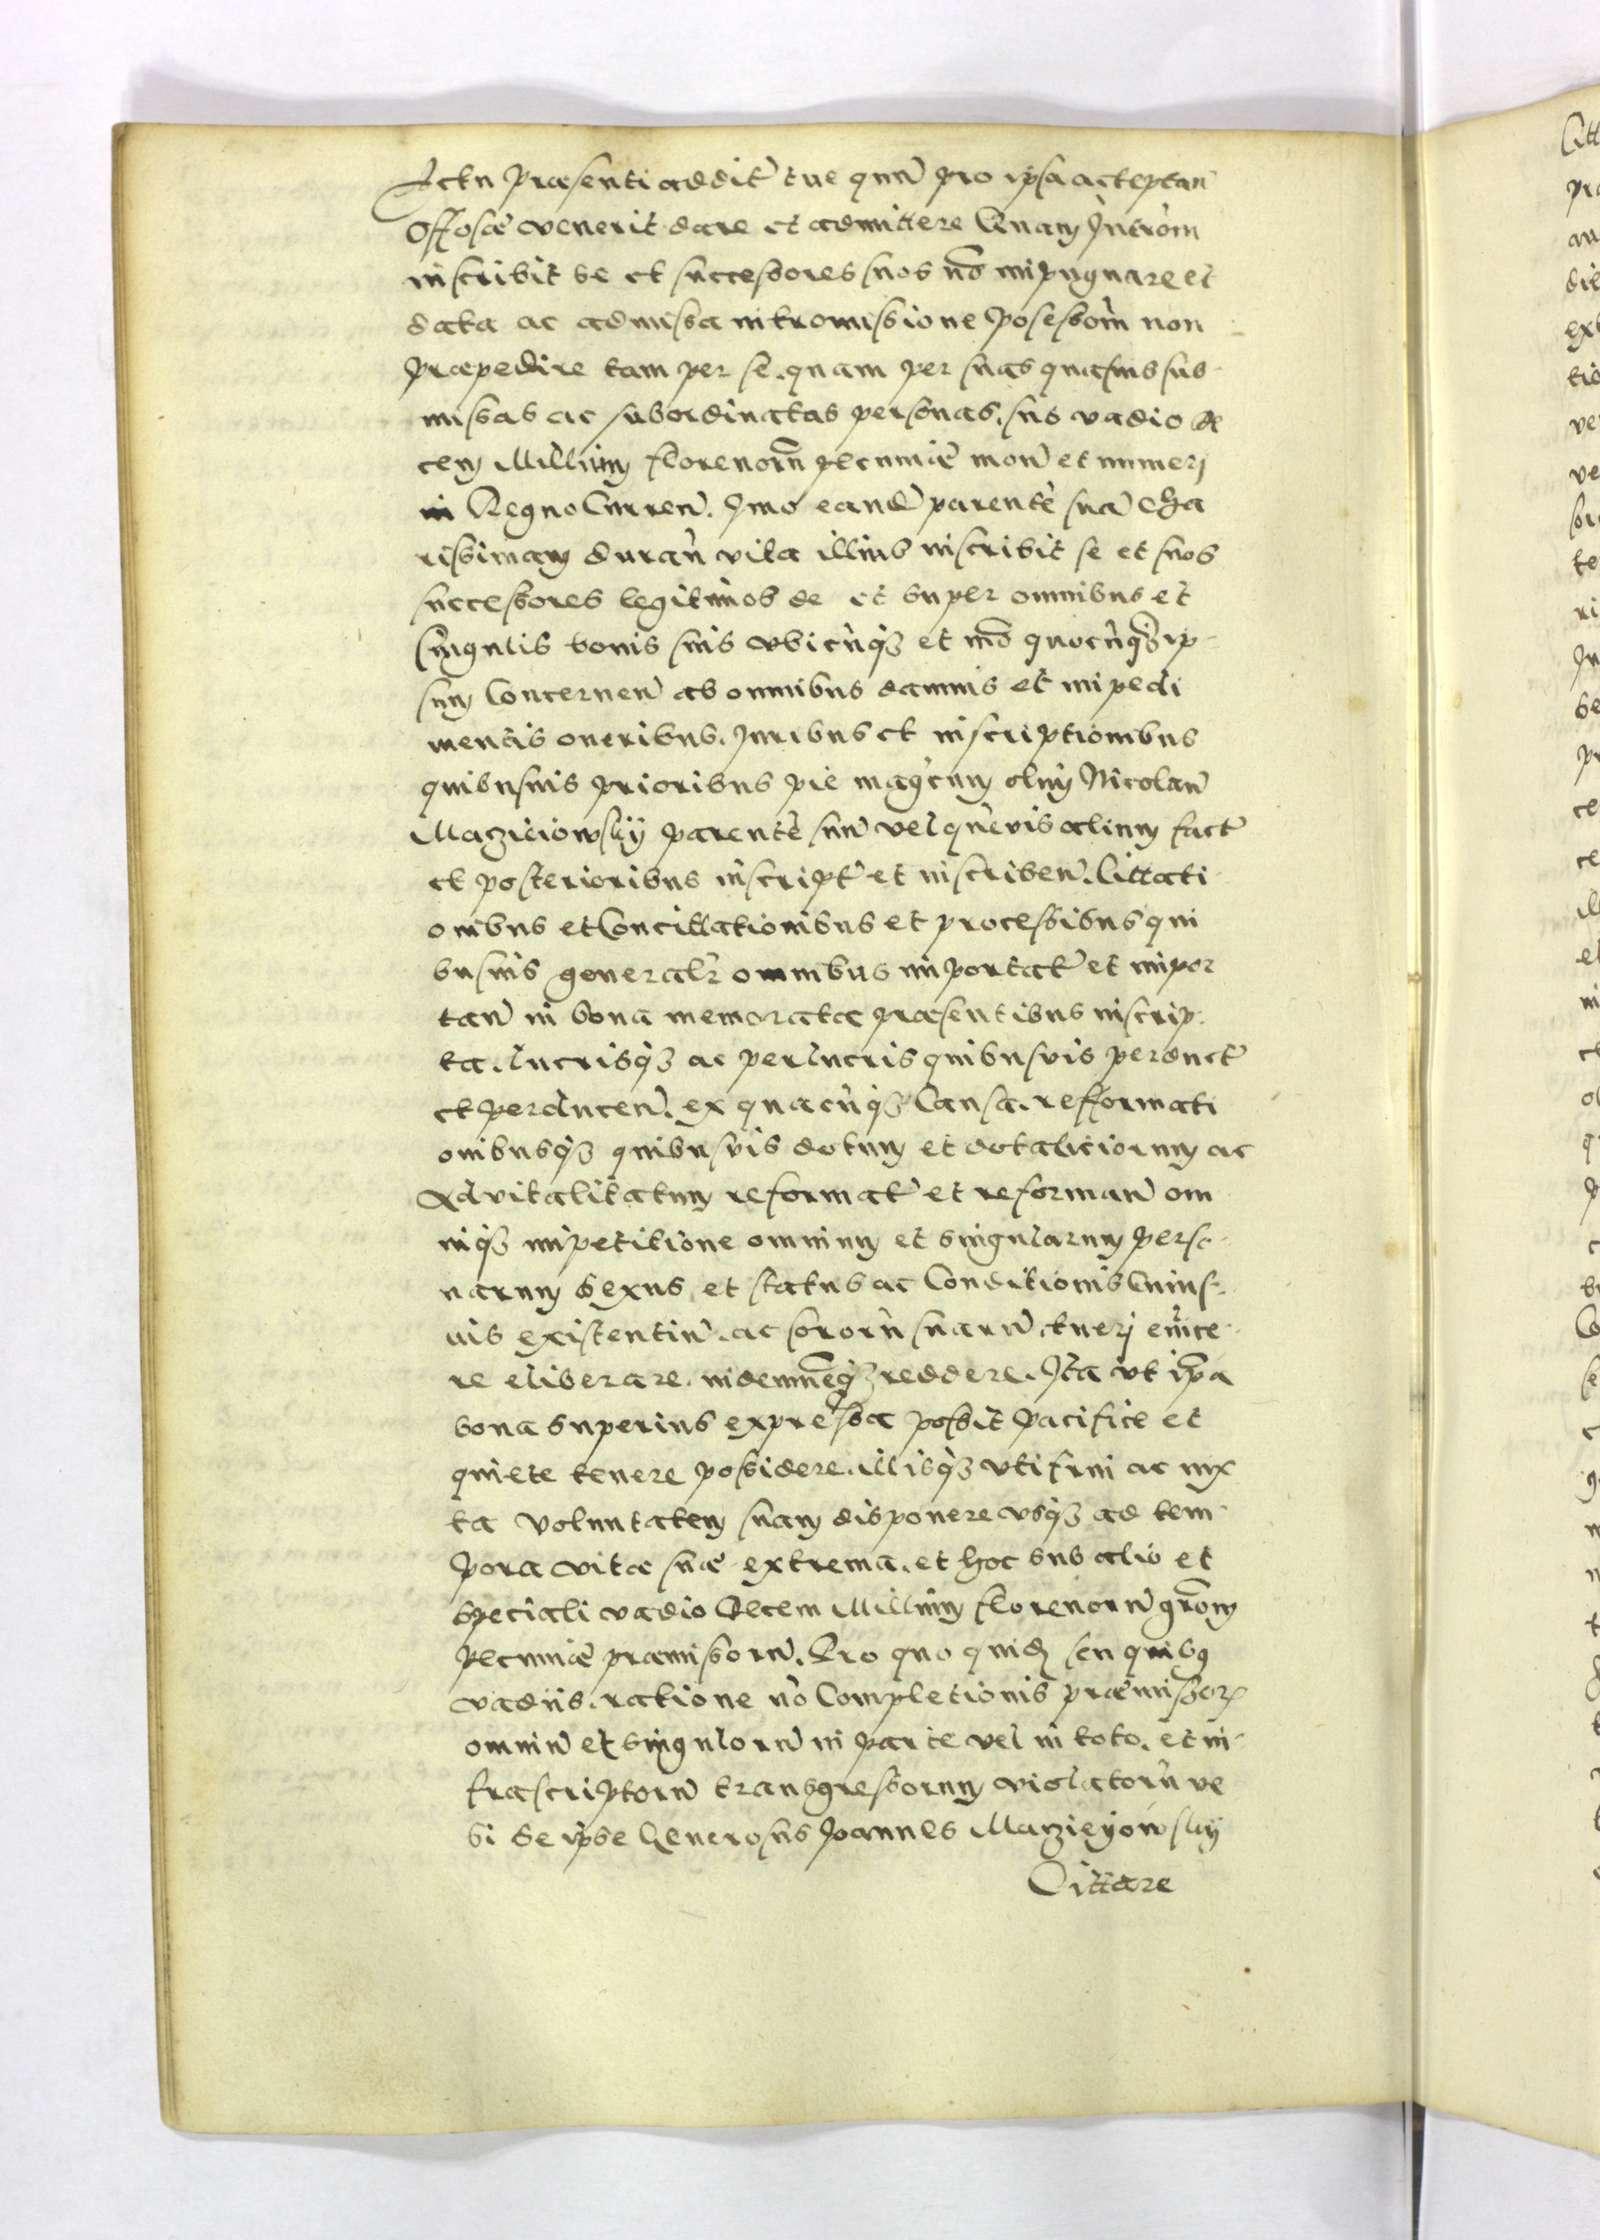 Actu praesenti addit tue qua pro ipsa acceptan
Offosae venerit dare et admittere Quam Introm
inscribit se et successores suos no impugnare et
data ac admissa intromissione possessorm non
praepedire tam per se quam per suas quasuis sub
missas ac subordinatas personas, sub vadio de
cem Millium florenoru pecuniae mon et numerj
in Regno Curren. Imo eand parente sua Cha
rissimam duran vita illius inscribit se et suos
successores legitimos de et super omnibus et
singulis bonis suis vbicunq3 et mo quocunq3 ip
sum Concernen ab omnibus damnis et impedi
mentis oneribus. Iuribus et inscriptionibus
quibusuis prioribus pie magcum olim Nicolau
Maczieiowskÿ parente suu vel queuis alium fact
et posterioribus inscript et inscriben. Cittati
onibus et Concittationibus et processibus qui
busuis generalr omnibus importat et impor
tan in bona memorata praesentibus inscrip
ta. lucrisq3 ac perlucris quibusuis perduct
et perducen. ex quacunq3 Causa. refformati
onibusq3 quibusuis dotum et dotaliciorum ac
Advitalitatum reformat et reforman om
niq3 impetitione omnium et singularum perso
narum sexus et status ac Conditionis Cuius
uis existentiu. ac sororu suaru tuerj euince
re eliberare. indemneq3 reddere. Ita vt ipa
bona superius expressa possit pacifice et
quiete tenere possidere. illisq3 vti frui ac iux
ta voluntatem suam disponere vsq3 ad tem
pora vitae suae extrema. et hoc sub alio et
speciali vadio Decem Millium florenoru
pecuniae praemissoru. Pro quo quid seu quibus
vadiis. ratione no Completionis praemissor
omniu et singuloru in parte vel in toto. et in
frascriptoru transgressorum violatoru ve
si se ipse Generosus Joannes Maczieÿowskÿ
Cittare